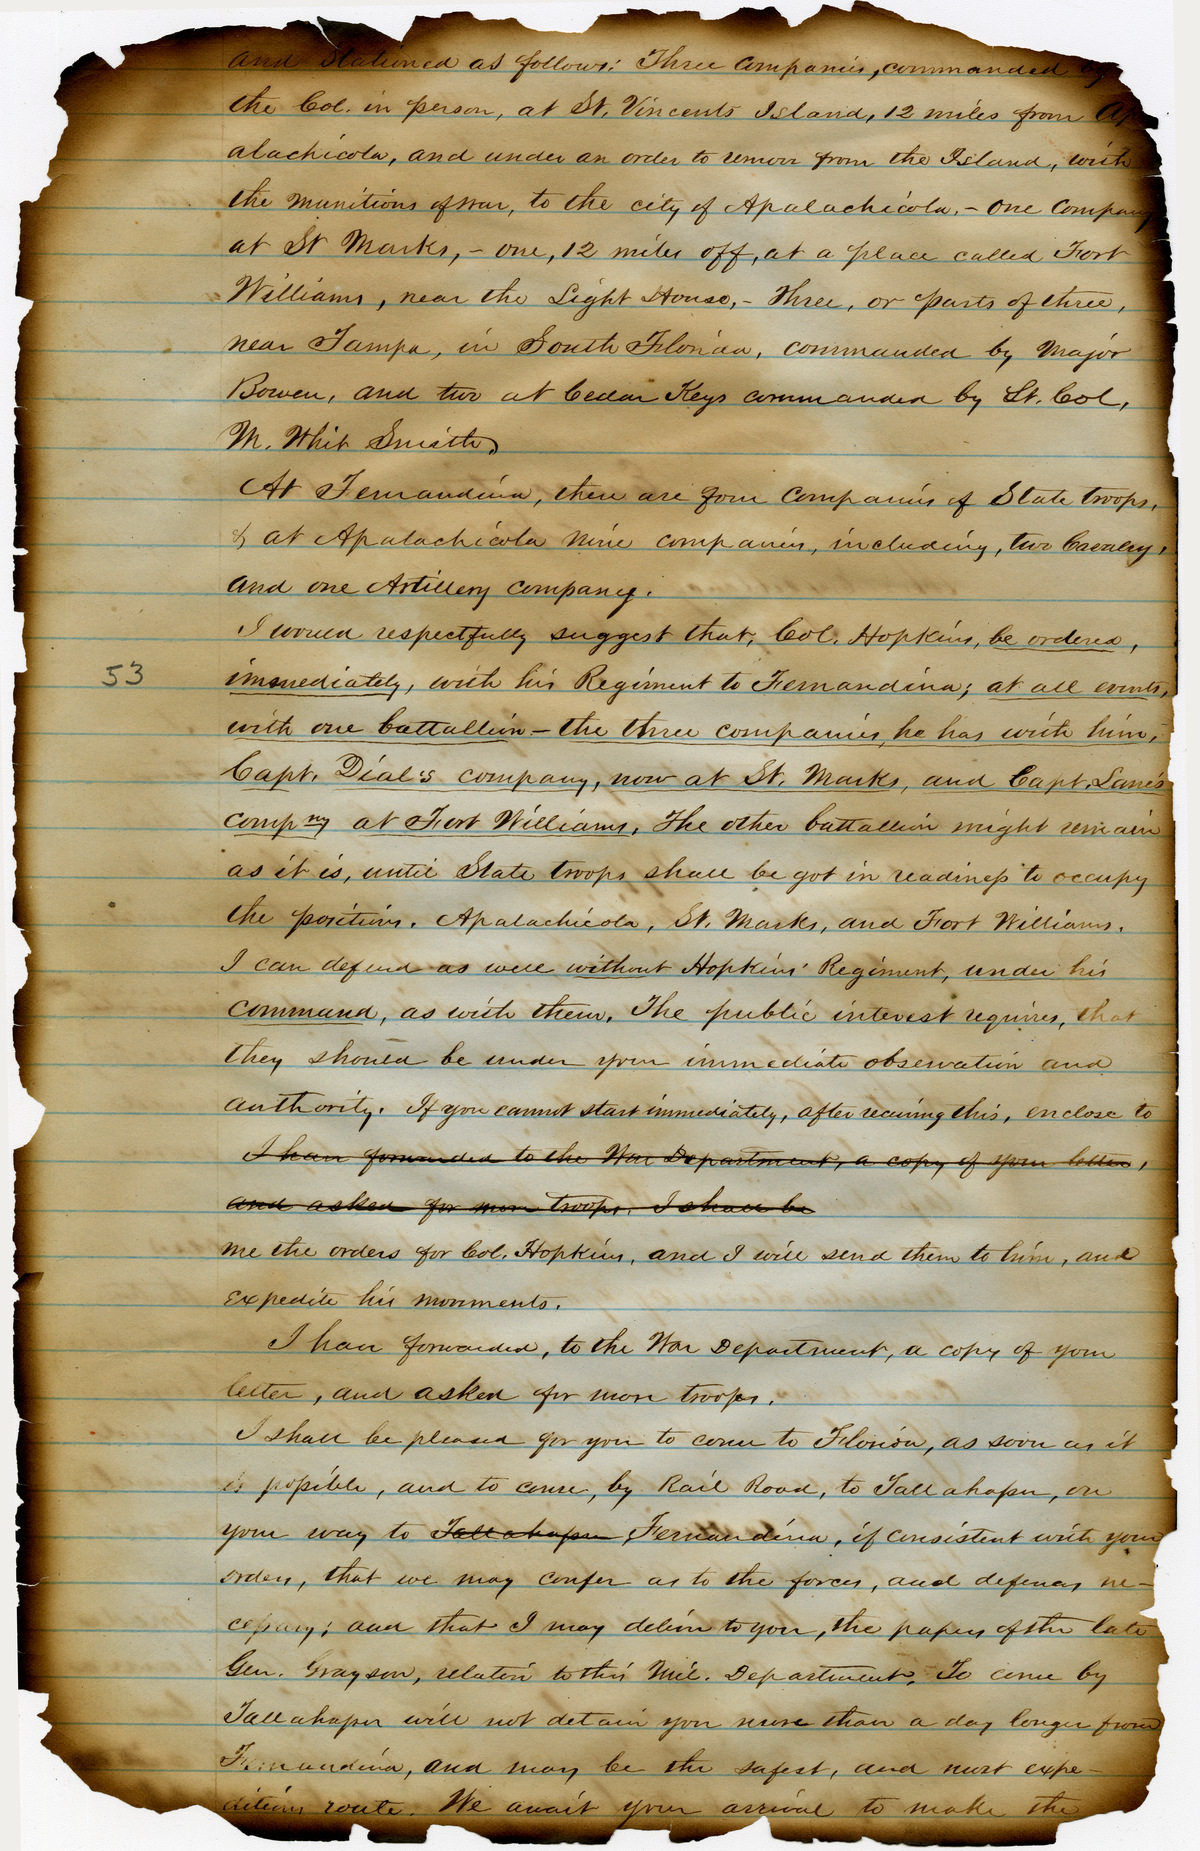 and stationed as follows: Three Companies, commanded by
the Col. in person, at St. Vincents Island, 12 miles from Ap
alachicola, and under an order to remove from the Island, with
the munitions of war, to the city of Apalachicola, - One Company
at St Marks, - one, 12 miles off, at a place called Fort
Williams, near the Light House, - Three, or parts of three,
near Tampa, in South Florida, commanded by Major
Bowen, and two at Cedar Keys commanded by Lt. Col,
M. Whit Smith.
At Fernandina, there are four Companies of State troops,
& at Apalachicola nine companies, including, two Cavalry,
and one Artillery company.
I would respectfully suggest that, Col. Hopkins, be ordered,
53
immediately, with his Regiment to Fernandina; at all events,
with one battallion - the three companies, he has with him,
Capt. Dial's company, now at St. Marks, and Capt. Lane's
compny at Fort Williams. The other battallion might remain
as it is, until State troops shall be got in readiness to occupy
the positions. Apalachicola, St. Marks, and Fort Williams.
I can defend as well without Hopkins' Regiment, under his
command, as with them. The public interest requires, that
they should be under your immediate observation and
authority. If you cannot start immediately, after receiving this, enclose to
I have forwarded to the War Department, a copy of your letter,
and asked for more troops. I shall be
me the orders for Col. Hopkins, and I will send them to him, and
expedite his movments.
I have forwarded, to the War Department, a copy of your
letter, and asked for more troops.
I shall be pleased for you to come to Florida, as soon as it
is possible, and to come, by Rail Road, to Tallahassee, on
your way to Tallahassee Fernandina, if consistent with your
orders, that we may confer as to the forces, and defences ne-
cessary; and that I may deliver to you, the papers of the late
Gen. Grayson, relative to this Mil. Department. To come by
Tallahassee will not detain you more than a day longer from
Fernandina, and may be the safest, and most expe-
ditious route. We await your arrival to make the